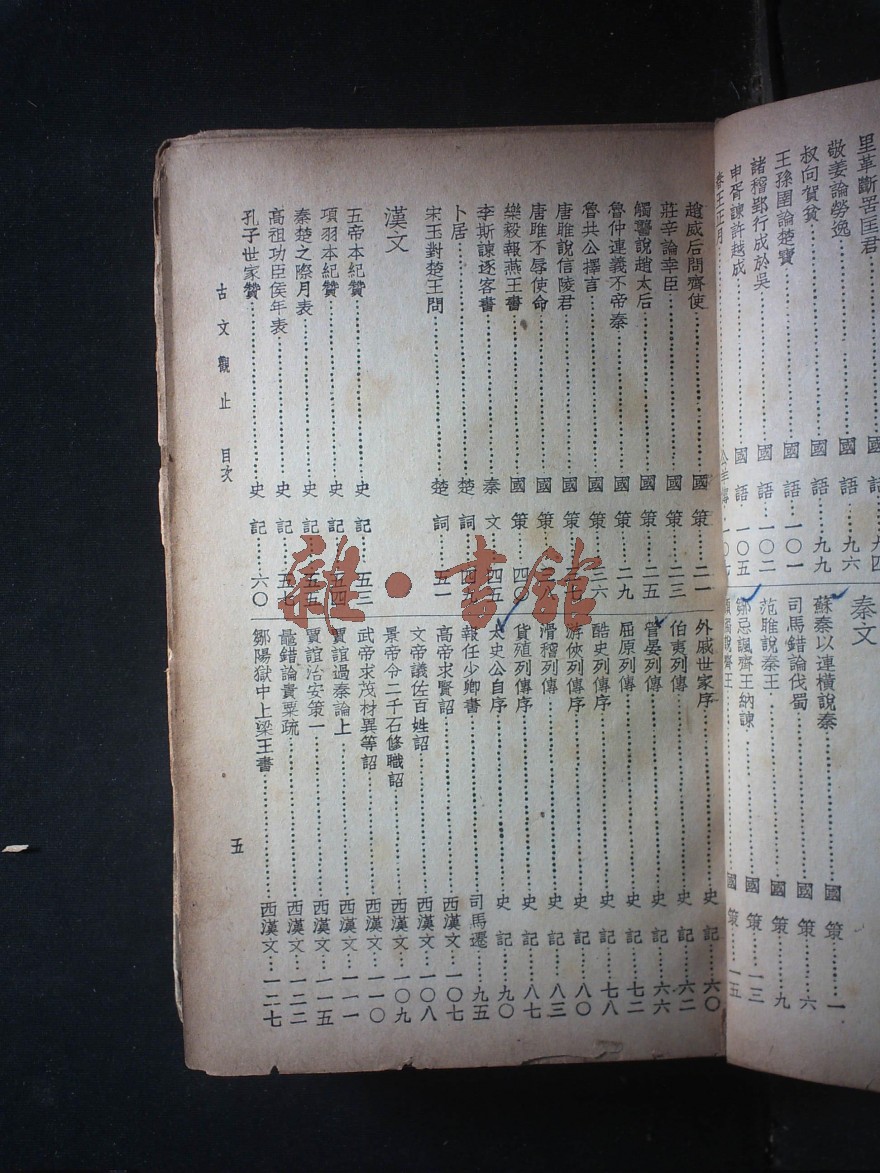 里革斷罟匡君 國語 九四
敬姜論勞逸 國語 九六
叔向賀貧 國語 九九
王孫圉論楚寶 國語 一〇一
諸稽郢行成於吳 國語 一〇二
申胥諫許越成 國語 一〇五
春王正月 公羊傳
秦文
蘇秦以連橫說秦 國策 一
司馬錯論伐蜀 國策 六
范睢說秦王 國策 九
鄒忌諷齊王納諫 國策 一三
顏斶說齊王 國策 一五
趙威后問齊使 國策 二一
莊辛論幸臣 國策 二三
觸讋說趙太后 國策 二五
魯仲連義不帝秦 國策 二九
魯共公擇言 國策 三六
唐睢說信陵君 國策 三七
唐睢不辱使命 國策
樂毅報燕王書 國策 四〇
李斯諫逐客書 秦文 四五
卜居 楚詞 四九
宋玉對楚王問 楚詞 五二
漢文
五帝本紀贊 史記 五三
項羽本紀贊 史記 五四
秦楚之際月表 史記 五五
高祖功臣侯年表 史記 五七
孔子世家贊 史記 六〇
外戚世家序 史記 六〇
伯夷列傳 史記 六二
管晏列傳 史記 六六
屈原列傳 史記 七二
酷吏列傳序 史記 七八
游俠列傳序 史記 八〇
滑稽列傳 史記 八三
貨殖列傳序 史記 八七
太史公自序 史記 九〇
報任少卿書 司馬遷 九五
高帝求賢詔 西漢文 一〇七
文帝議佐百姓詔 西漢文 一〇八
景帝令二千石修職詔 西漢文 一〇九
武帝求茂材異等詔 西漢文 一一〇
賈誼過秦論上 西漢文 一一一
賈誼治安策一 西漢文 一一五
鼂錯論貴粟疏 西漢文 一二二
鄒陽獄中上梁王書 西漢文 一二七
古文觀止 目次
五
雜·書館